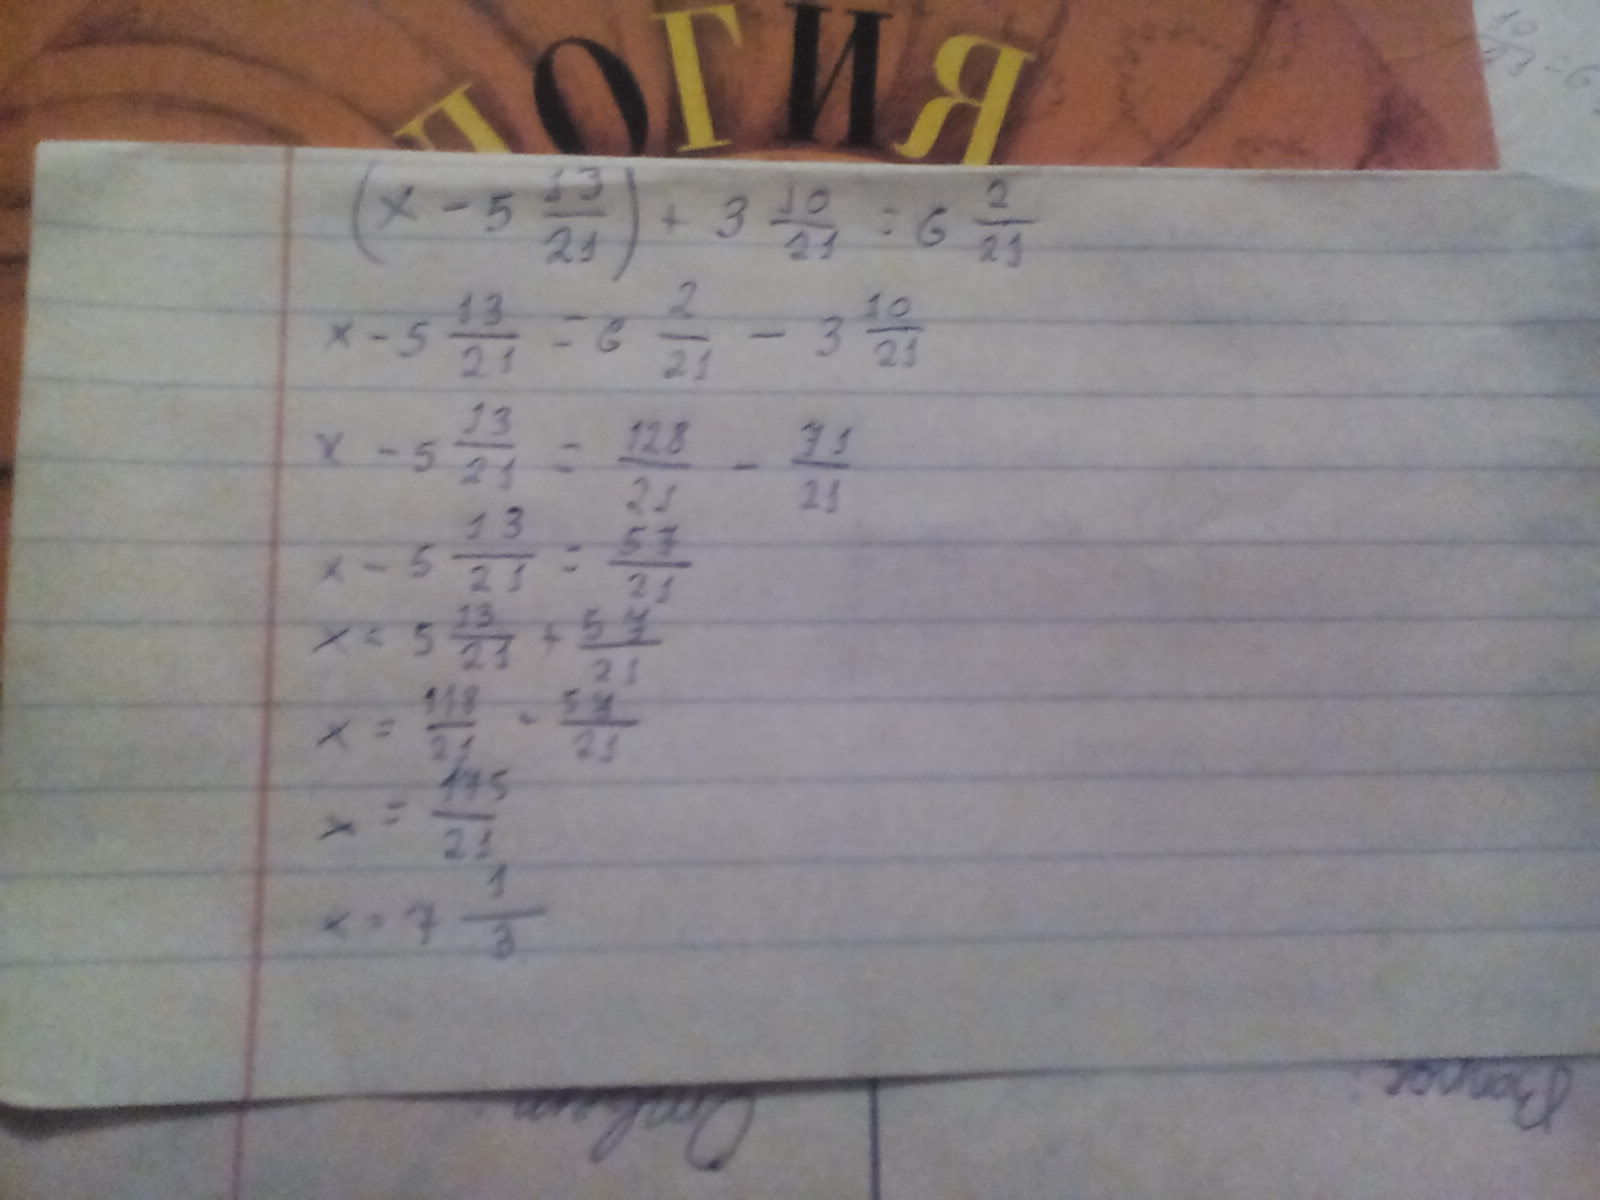 ЛОГИЯ
(x - 5 13/21) + 3 10/21 = 6 2/21
x - 5 13/21 = 6 2/21 - 3 10/21
x - 5 13/21 = 128/21 - 71/21
x - 5 13/21 = 57/21
x = 5 13/21 + 57/21
x = 118/21 + 57/21
x = 175/21
x = 7 1/3
Ответ:
Вопрос: